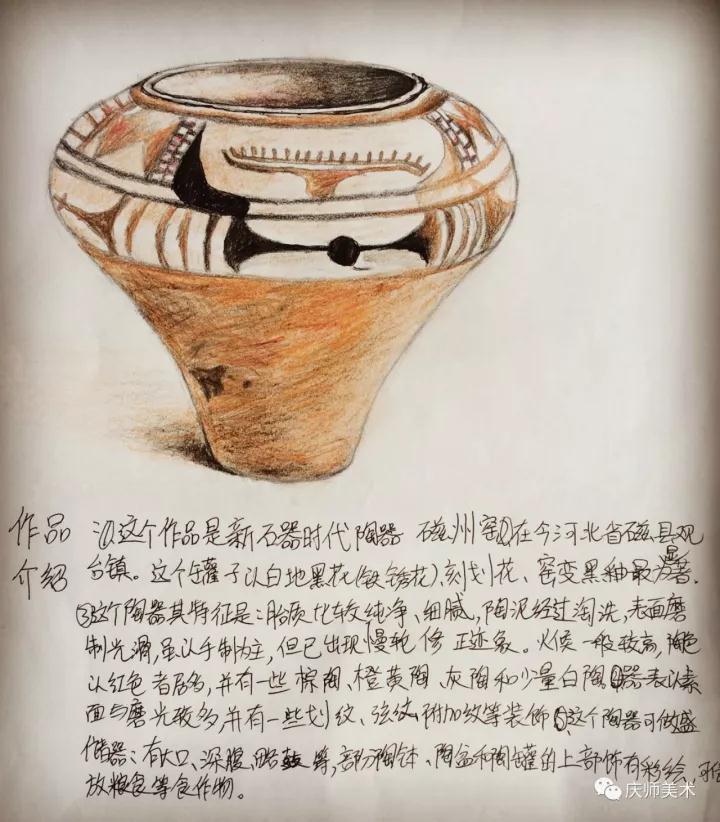 作品
介绍
①这个作品是新石器时代陶器 磁州窑②在今河北省磁县观
台镇。这个罐子以白地黑花(铁锈花)、刻划花、窑变黑釉最为显著.
③这个陶器其特征是:胎质比较纯净、细腻,陶泥经过淘洗,表面磨
制光滑,虽以手制为主,但已出现慢轮修正迹象。火候一般较高,陶色
以红色者居多,并有一些棕陶、橙黄陶、灰陶和少量白陶④器表以素
面与磨光较多,并有一些划纹、弦纹、附加纹等装饰⑤这个陶器可做盛
储器:有大口、深腹、略鼓等,部分陶钵、陶盆和陶罐的上部饰有彩绘,可
放粮食等食作物。
庆师美术